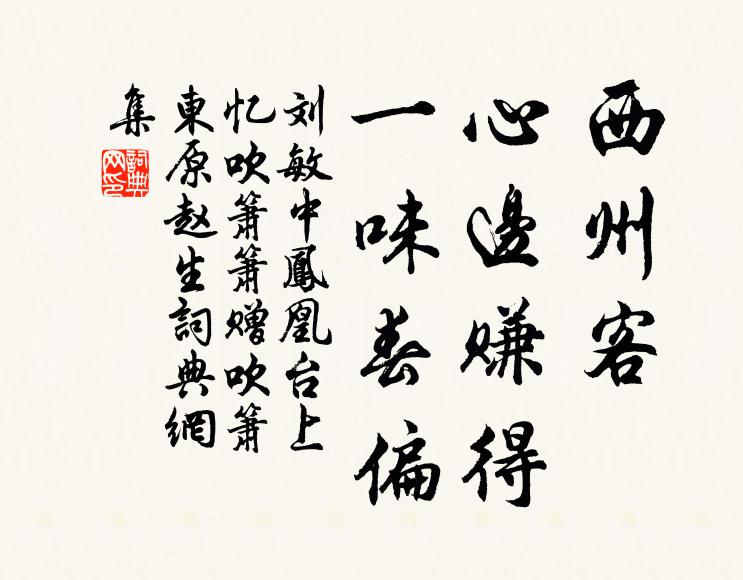 西州客
心邊赚得
一味春偏
刘敏中鳳凰台上
忆吹箫箫赠吹箫
東原赵生詞典網
集
詞典网印